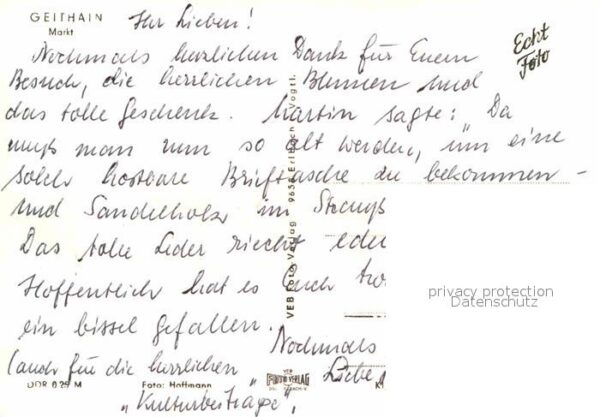 GEITHAIN
Markt
Ihr Lieben!
Echt
Foto
Nochmals herzlichen Dank für Euern
Besuch, die herrlichen Blumen und
das tolle Geschenk. Martin sagte: „Da
muß man nun so alt werden, um eine
solch kostbare Brieftasche zu bekommen -
und Sandelholz im
Das tolle Leder riecht
Hoffentlich hat es Euch
ein bissel gefallen.
Nochmals
(auch für die herrlichen Liebe
„Kulturbeiträge",
VEB Foto-Verlag 9656 Erlbach Vogtl.
privacy protection
Datenschutz
DDR 0.25 M
Foto: Hoffmann
VEB
FOTO VERLAG